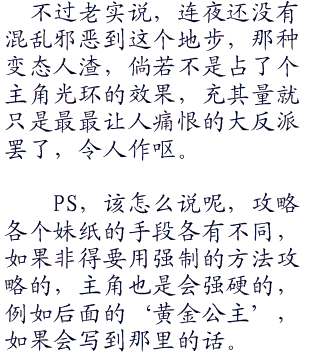 不过老实说，连夜还没有
混乱邪恶到这个地步，那种
变态人渣，倘若不是占了个
主角光环的效果，充其量就
只是最最让人痛恨的大反派
罢了，令人作呕。
PS，该怎么说呢，攻略
各个妹纸的手段各有不同，
如果非得要用强制的方法攻
略的，主角也是会强硬的，
例如后面的‘黄金公主’，
如果会写到那里的话。